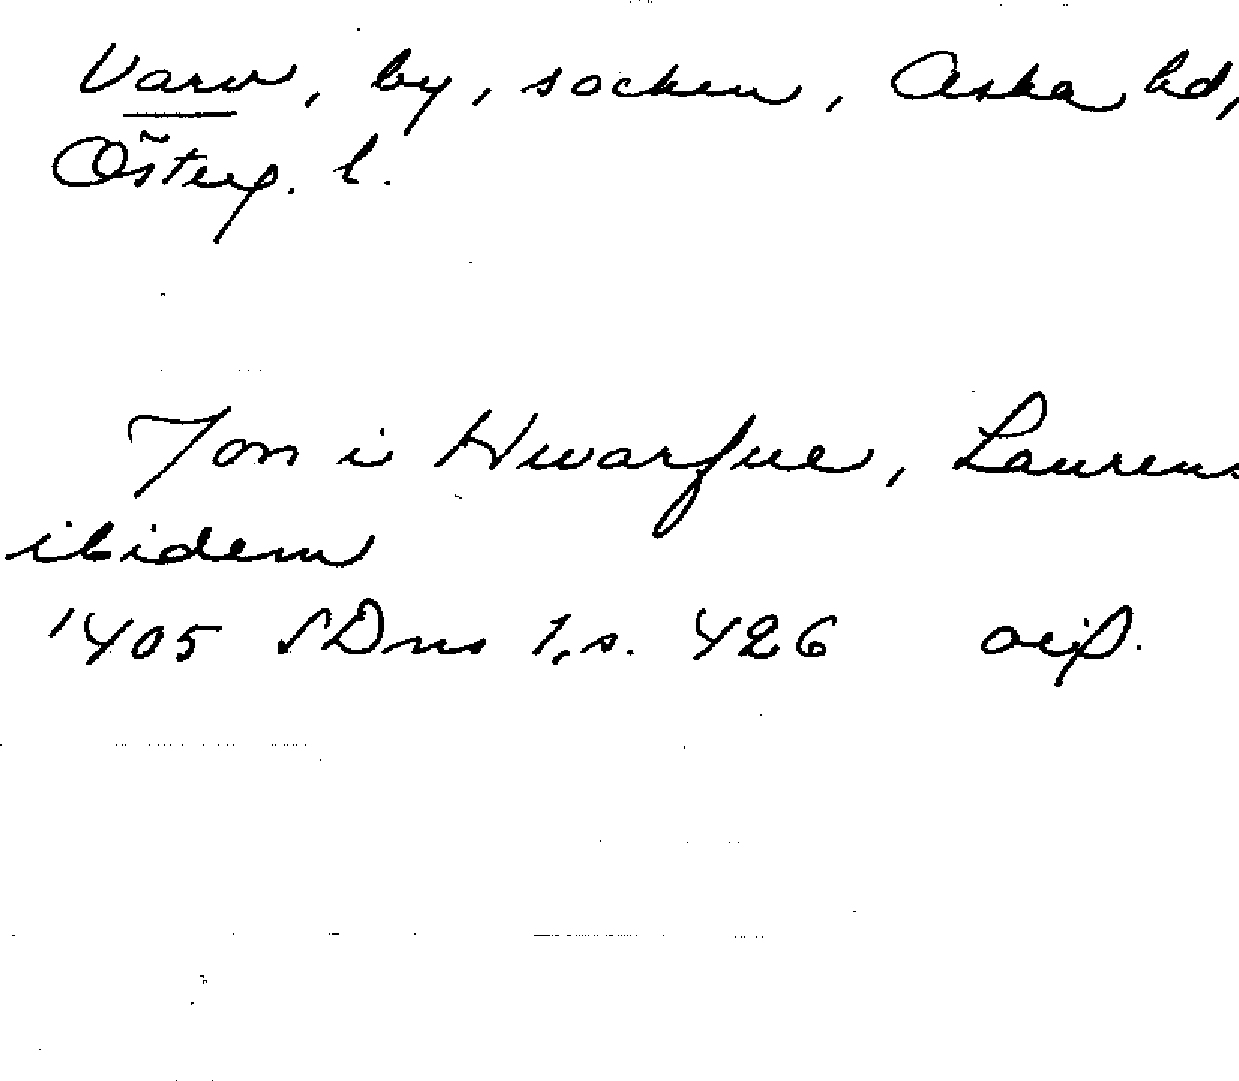 Varv, by, socken, Aska hd,
Österg. l.
Jon i Hwarfue, Laurens
ibidem
1405 SDns 1, s. 426 or.